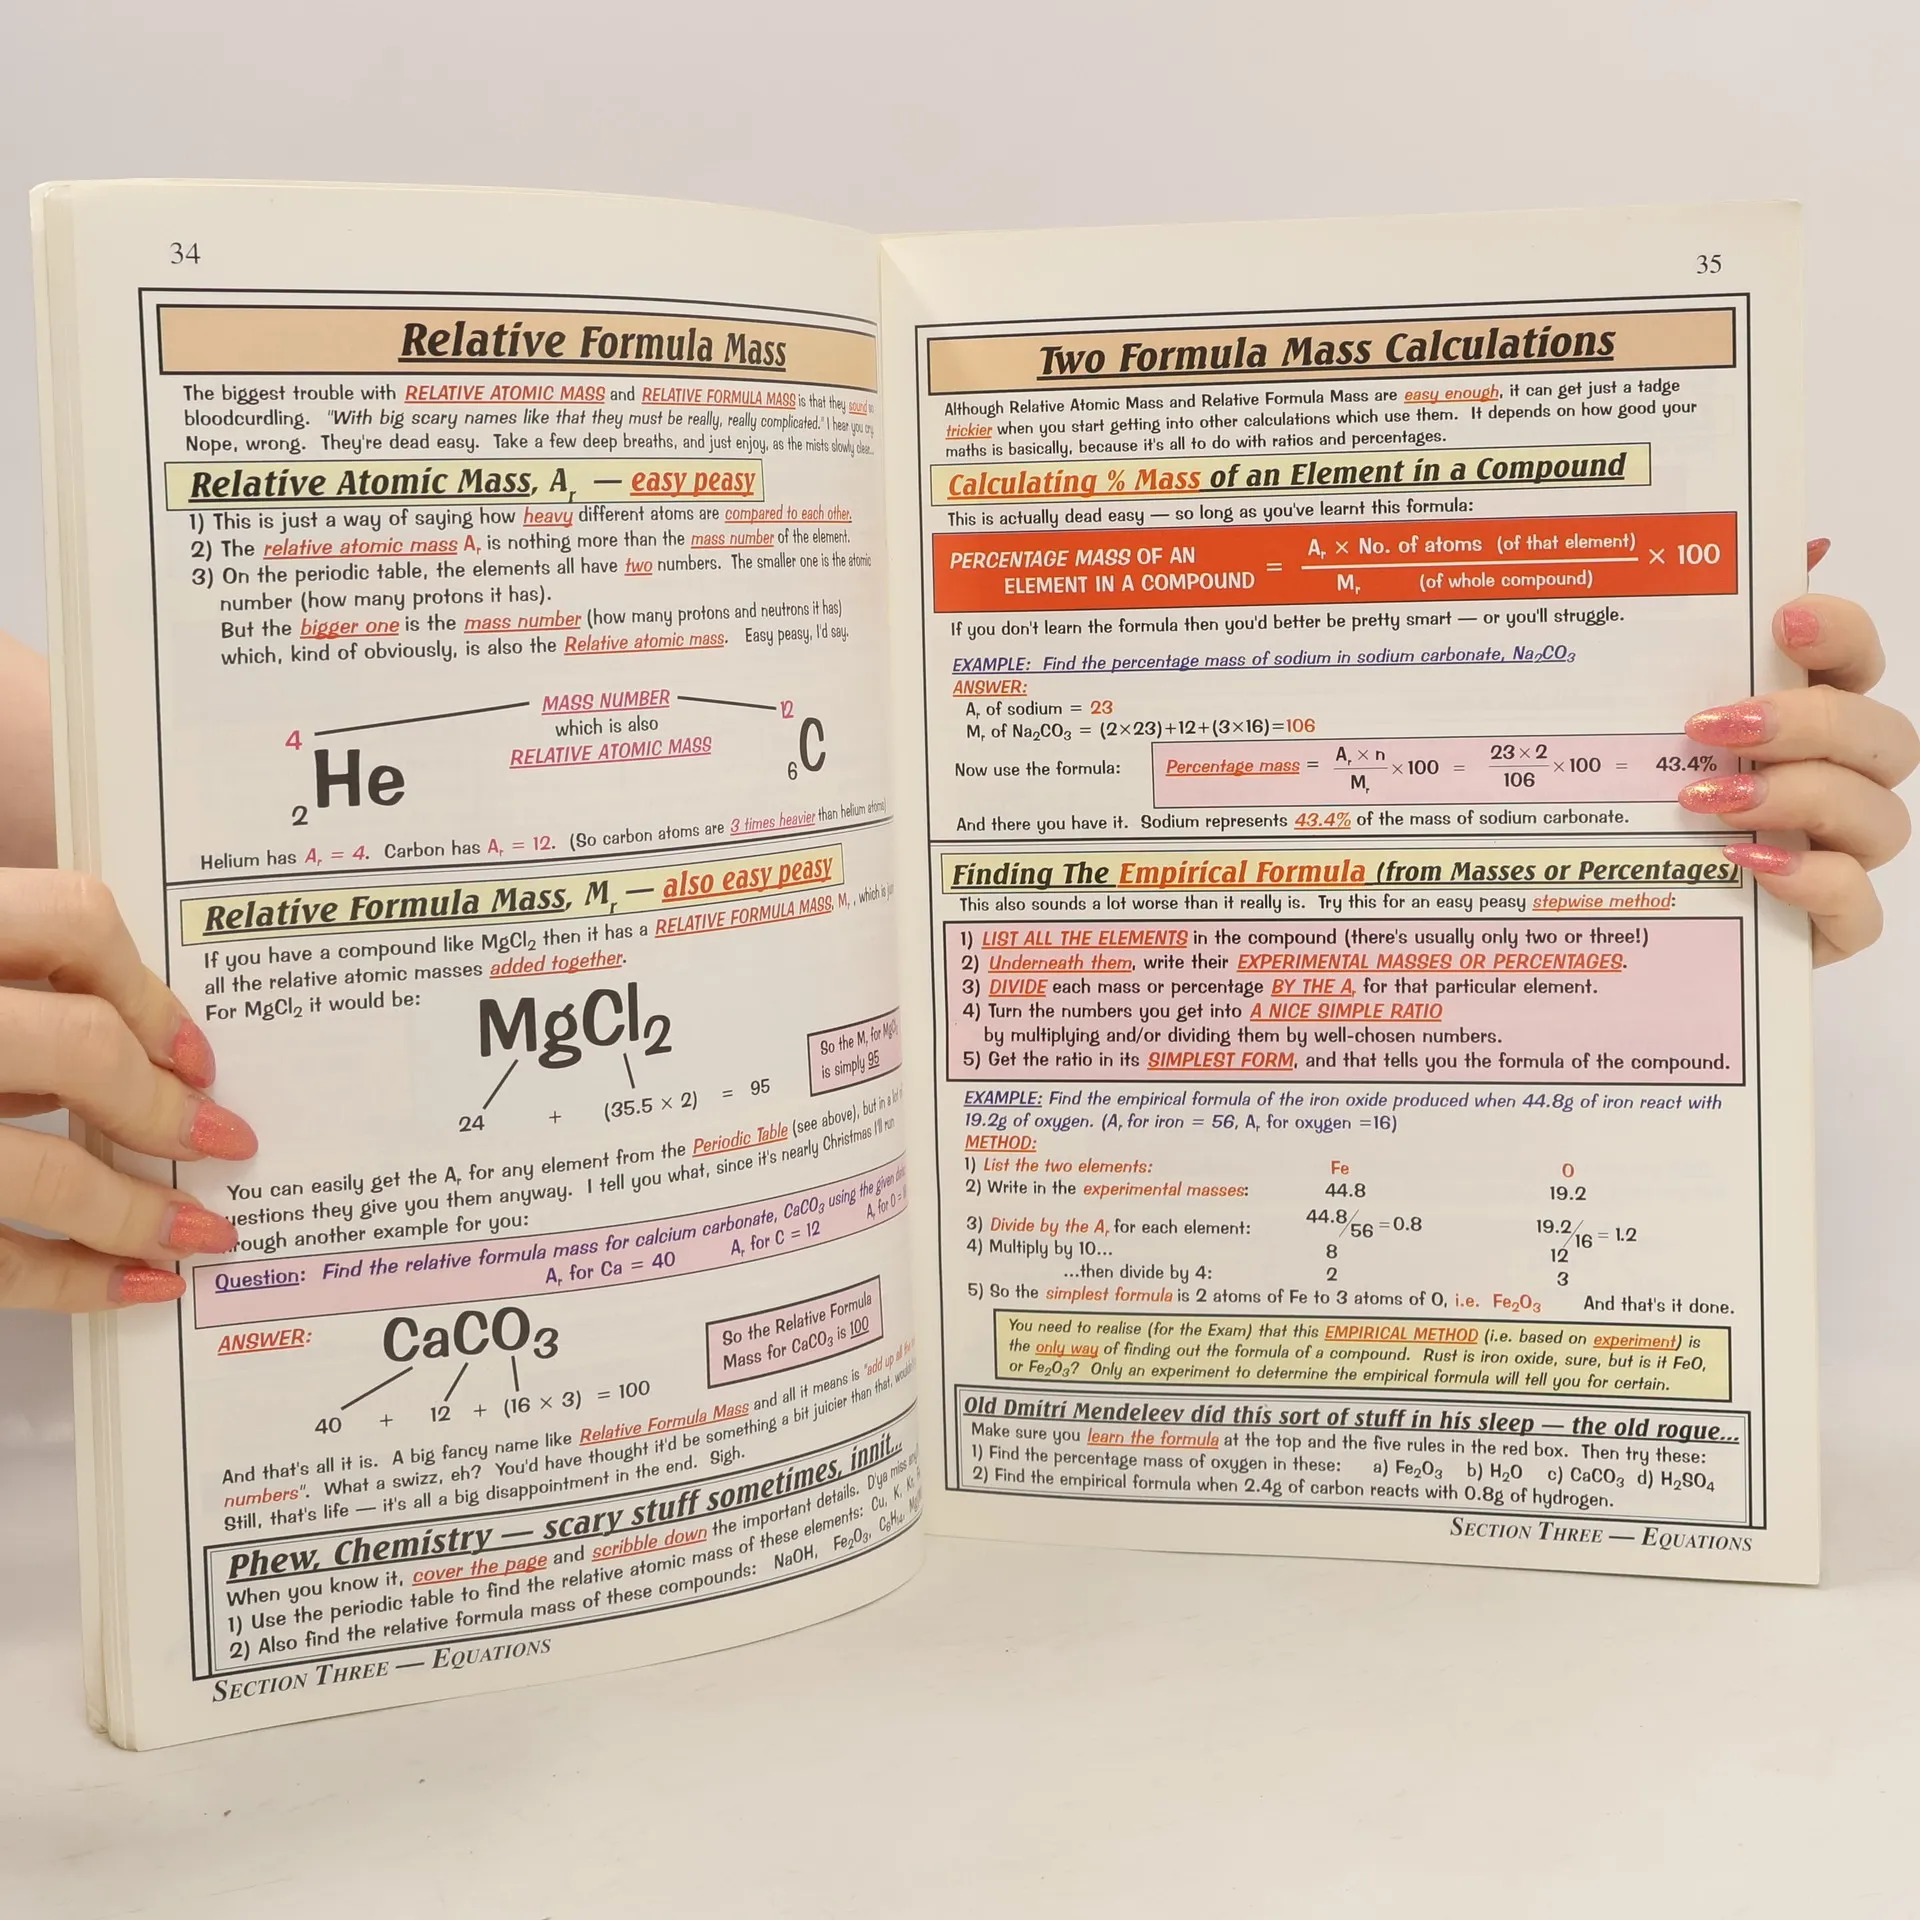 34
Relative Formula Mass
The biggest trouble with RELATIVE ATOMIC MASS and RELATIVE FORMULA MASS is that they sound so
bloodcurdling. "With big scary names like that they must be really, really complicated." I hear you cry
Nope, wrong. They're dead easy. Take a few deep breaths, and just enjoy, as the mists slowly clear...
Relative Atomic Mass, Aᵣ — easy peasy
1) This is just a way of saying how heavy different atoms are compared to each other.
2) The relative atomic mass Aᵣ is nothing more than the mass number of the element.
3) On the periodic table, the elements all have two numbers. The smaller one is the atomic
number (how many protons it has).
But the bigger one is the mass number (how many protons and neutrons it has)
which, kind of obviously, is also the Relative atomic mass. Easy peasy, I'd say.
MASS NUMBER
which is also
RELATIVE ATOMIC MASS
4
He
2
12
C
6
Helium has Aᵣ = 4. Carbon has Aᵣ = 12. (So carbon atoms are 3 times heavier than helium atoms)
Relative Formula Mass, Mᵣ — also easy peasy
If you have a compound like MgCl₂ then it has a RELATIVE FORMULA MASS, Mᵣ, which is just
all the relative atomic masses added together.
For MgCl₂ it would be:
MgCl₂
24 + (35.5 × 2) = 95
So the Mᵣ for MgCl₂
is simply 95
You can easily get the Aᵣ for any element from the Periodic Table (see above), but in a lot
uestions they give you them anyway. I tell you what, since it's nearly Christmas I'll run
rough another example for you:
Question: Find the relative formula mass for calcium carbonate, CaCO₃ using the given data
Aᵣ for Ca = 40 Aᵣ for C = 12 Aᵣ for O =
ANSWER:
CaCO₃
40 + 12 + (16 × 3) = 100
So the Relative Formula
Mass for CaCO₃ is 100
And that's all it is. A big fancy name like Relative Formula Mass and all it means is "add up all the
numbers". What a swizz, eh? You'd have thought it'd be something a bit juicier than that,
Still, that's life — it's all a big disappointment in the end. Sigh.
Phew, Chemistry — scary stuff sometimes, innit...
When you know it, cover the page and scribble down the important details. D'ya miss
1) Use the periodic table to find the relative atomic mass of these elements: Cu, K, Kr,
2) Also find the relative formula mass of these compounds: NaOH, Fe₂O₃, C₆H₁₄,
SECTION THREE — EQUATIONS
35
Two Formula Mass Calculations
Although Relative Atomic Mass and Relative Formula Mass are easy enough, it can get just a tadge
trickier when you start getting into other calculations which use them. It depends on how good your
maths is basically, because it's all to do with ratios and percentages.
Calculating % Mass of an Element in a Compound
This is actually dead easy — so long as you've learnt this formula:
PERCENTAGE MASS OF AN
ELEMENT IN A COMPOUND
=
Aᵣ × No. of atoms (of that element)
Mᵣ (of whole compound)
× 100
If you don't learn the formula then you'd better be pretty smart — or you'll struggle.
EXAMPLE: Find the percentage mass of sodium in sodium carbonate, Na₂CO₃
ANSWER:
Aᵣ of sodium = 23
Mᵣ of Na₂CO₃ = (2×23)+12+(3×16)=106
Now use the formula:
Percentage mass = Aᵣ × n / Mᵣ ×100 = 23 × 2 / 106 ×100 = 43.4%
And there you have it. Sodium represents 43.4% of the mass of sodium carbonate.
Finding The Empirical Formula (from Masses or Percentages)
This also sounds a lot worse than it really is. Try this for an easy peasy stepwise method:
1) LIST ALL THE ELEMENTS in the compound (there's usually only two or three!)
2) Underneath them, write their EXPERIMENTAL MASSES OR PERCENTAGES.
3) DIVIDE each mass or percentage BY THE Aᵣ for that particular element.
4) Turn the numbers you get into A NICE SIMPLE RATIO
by multiplying and/or dividing them by well-chosen numbers.
5) Get the ratio in its SIMPLEST FORM, and that tells you the formula of the compound.
EXAMPLE: Find the empirical formula of the iron oxide produced when 44.8g of iron react with
19.2g of oxygen. (Aᵣ for iron = 56, Aᵣ for oxygen =16)
METHOD:
1) List the two elements: Fe O
2) Write in the experimental masses: 44.8 19.2
3) Divide by the Aᵣ for each element: 44.8/56 = 0.8 19.2/16 = 1.2
4) Multiply by 10... 8 12
...then divide by 4: 2 3
5) So the simplest formula is 2 atoms of Fe to 3 atoms of O, i.e. Fe₂O₃ And that's it done.
You need to realise (for the Exam) that this EMPIRICAL METHOD (i.e. based on experiment) is
the only way of finding out the formula of a compound. Rust is iron oxide, sure, but is it FeO,
or Fe₂O₃? Only an experiment to determine the empirical formula will tell you for certain.
Old Dmitri Mendeleev did this sort of stuff in his sleep — the old rogue...
Make sure you learn the formula at the top and the five rules in the red box. Then try these:
1) Find the percentage mass of oxygen in these: a) Fe₂O₃ b) H₂O c) CaCO₃ d) H₂SO₄
2) Find the empirical formula when 2.4g of carbon reacts with 0.8g of hydrogen.
SECTION THREE — EQUATIONS